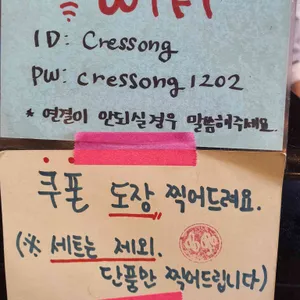 WIFI
ID: Cressong
PW: cressong1202
* 연결이 안되실경우 말씀해주세요.
쿠폰 도장 찍어드려요.
(※ 세트는 제외.
단품만 찍어드립니다)